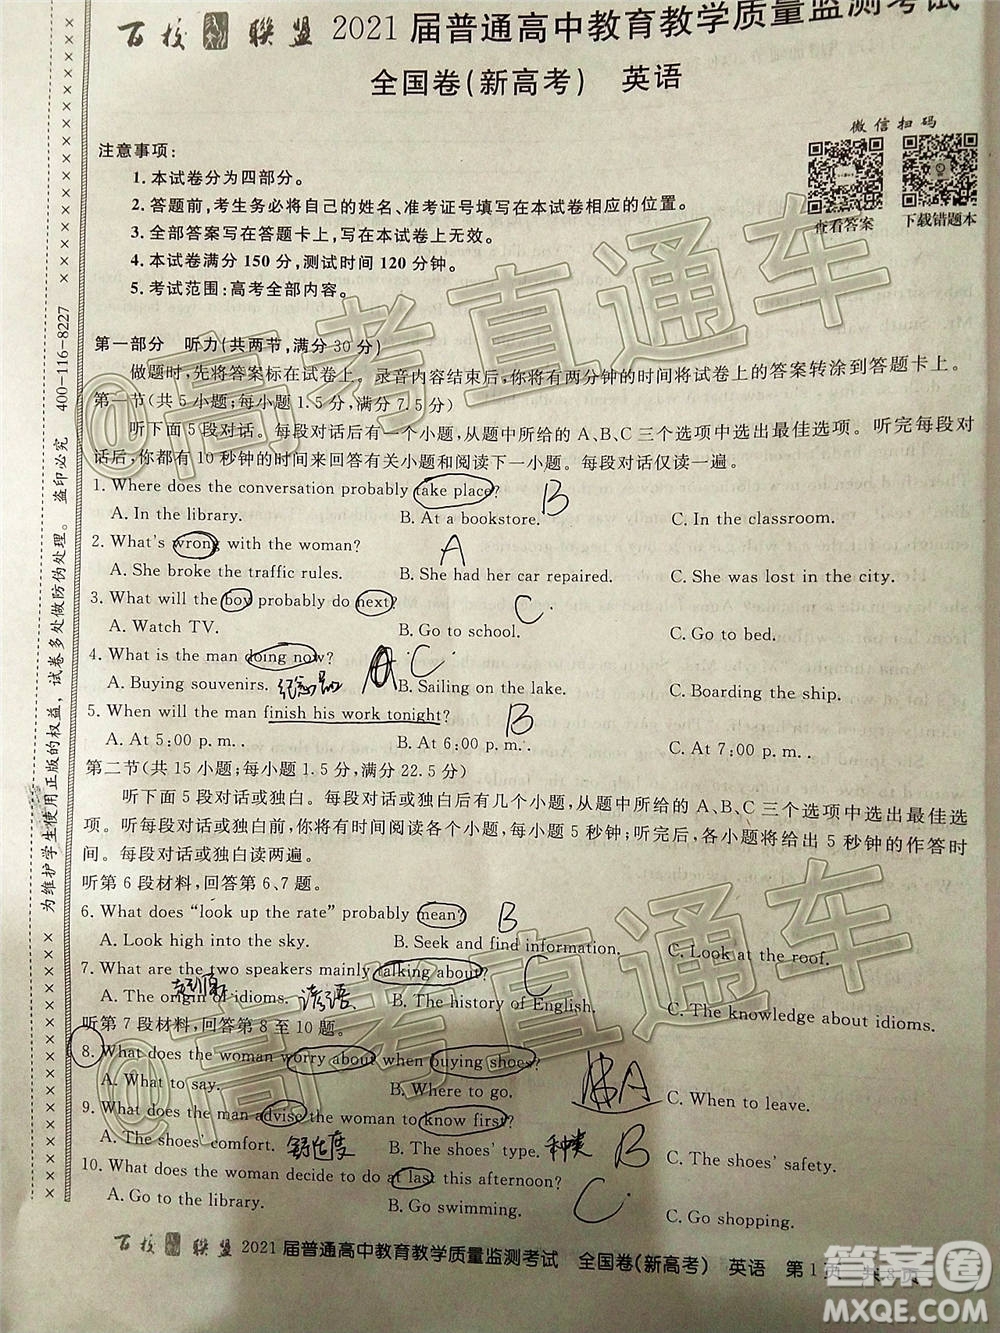 百校联盟 2021届普通高中教育教学质量监测考试
全国卷(新高考) 英语
微信扫码
查看答案 下载错题本
注意事项:
1.本试卷分为四部分。
2.答题前,考生务必将自己的姓名、准考证号填写在本试卷相应的位置。
3.全部答案写在答题卡上,写在本试卷上无效。
4.本试卷满分150分,测试时间120分钟。
5.考试范围:高考全部内容。
第一部分 听力(共两节,满分30分)
做题时,先将答案标在试卷上。录音内容结束后,你将有两分钟的时间将试卷上的答案转涂到答题卡上。
第一节(共5小题;每小题1.5分,满分7.5分)
听下面5段对话。每段对话后有一个小题,从题中所给的A、B、C三个选项中选出最佳选项。听完每段对
话后,你都有10秒钟的时间来回答有关小题和阅读下一小题。每段对话仅读一遍。
1. Where does the conversation probably take place? B
A. In the library. B. At a bookstore. C. In the classroom.
2. What's wrong with the woman? A
A. She broke the traffic rules. B. She had her car repaired. C. She was lost in the city.
3. What will the boy probably do next? C
A. Watch TV. B. Go to school. C. Go to bed.
4. What is the man doing now? C
A. Buying souvenirs. 纪念品 B. Sailing on the lake. C. Boarding the ship.
5. When will the man finish his work tonight? B
A. At 5:00 p. m. . B. At 6:00 p. m. . C. At 7:00 p. m. .
第二节(共15小题;每小题1.5分,满分22.5分)
听下面5段对话或独白。每段对话或独白后有几个小题,从题中所给的A、B、C三个选项中选出最佳选
项。听每段对话或独白前,你将有时间阅读各个小题,每小题5秒钟;听完后,各小题将给出5秒钟的作答时
间。每段对话或独白读两遍。
听第6段材料,回答第6、7题。
6. What does “look up the rate” probably mean? B
A. Look high into the sky. B. Seek and find information. C. Look at the roof.
7. What are the two speakers mainly talking about? C
A. The origin of idioms. B. The history of English. C. The knowledge about idioms.
听第7段材料,回答第8至10题。
8. What does the woman worry about when buying shoes? A
A. What to say. B. Where to go. C. When to leave.
9. What does the man advise the woman to know first? B
A. The shoes' comfort. 舒适度 B. The shoes' type. 种类 C. The shoes' safety.
10. What does the woman decide to do at last this afternoon? C
A. Go to the library. B. Go swimming.
百校联盟 2021届普通高中教育教学质量监测考试 全国卷(新高考) 英语 第1页 共8页
为维护学生使用正版的权益,试卷多处做防伪处理。盗印必究 400-116-8227
@高考直通车
@高考直通车
答案圈
MXQE.COM